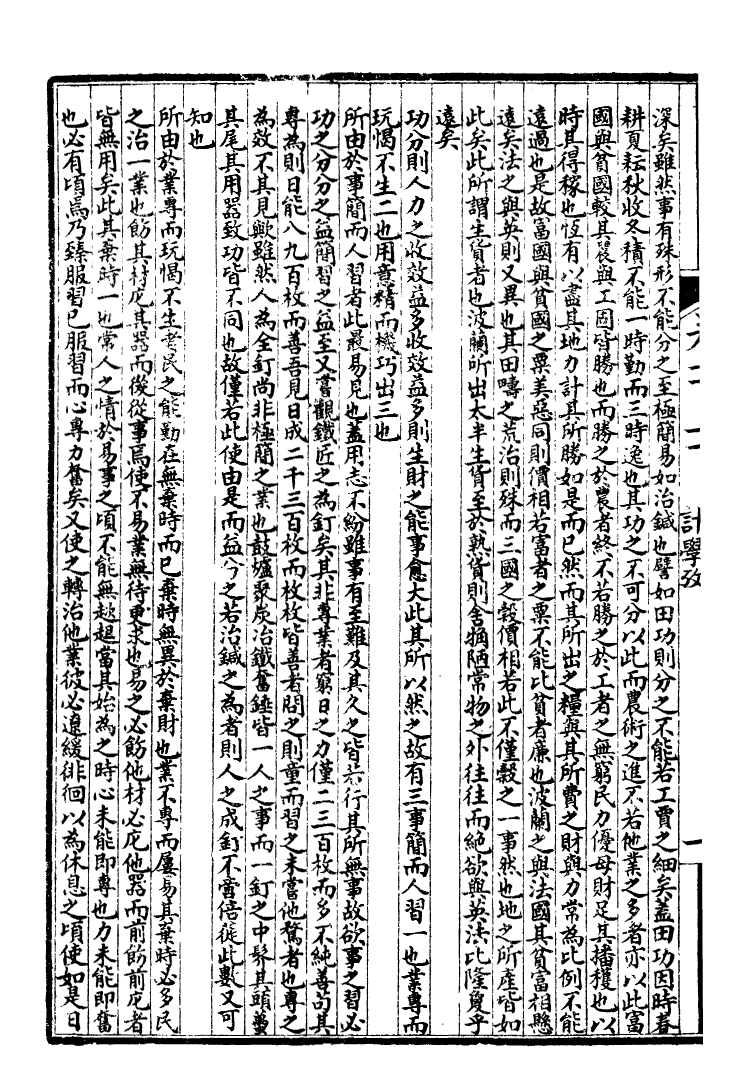 深矣雖然事有殊形不能分之至極簡易如治鍼也譬如田功則分之不能若工賈之細矣蓋田功因時春
耕夏耘秋收冬積不能一時勤而三時逸也其功之不可分以此而農術之進不若他業之多者亦以此富
國與貧國較其農與工固皆勝也而勝之於農者終不若勝之於工者之無窮民力優母財足其播穫也以
時其得稼也恆有以盡其地力計其所勝如是而已然而其所出之糧與其所費之財與力常為比例不能
遠過也是故富國與貧國之粟美惡同則價相若富者之粟不能比貧者廉也波蘭之與法國其貧富相懸
遠矣法之與英則又異也其田疇之荒治則殊而三國之穀價相若此不僅穀之一事然也地之所產皆如
此矣此所謂生貨者也波蘭所出大半生貨至於熟貨則舍觕陋常物之外往往而絕欲與英法比隆敻乎
遠矣
功分則人力之收效益多收效益多則生財之能事愈大此其所以然之故有三事簡而人習一也業專而
玩愒不生二也用意精而機巧出三也
所由於事簡而人習者此最易見也蓋用志不紛雖事有至難及其久之皆若行其所無事故欲事之習必
功之分分之益簡習之益至又嘗觀鐵匠之為釘矣其非專業者窮日之力僅二三百枚而多不純善苟其
專為則日能八九百枚而善吾見日成二千三百枚而枚枚皆善者問之則童而習之未嘗他騖者也專之
為效不其見歟雖然人為全釘尚非極簡之業也鼓爐聚炭冶鐵奮錘皆一人之事而一釘之中髹其頭蠆
其尾其用器致功皆不同也故僅若此使由是而益分之若治鍼之為者則人之成釘不啻倍蓰此數又可
知也
所由於業專而玩愒不生者民之能勤在無棄時而已棄時無異於棄財也業不專而屢易其棄時必多民
之治一業也飭其材庀其器而後從事焉使不易業無待更求也易之必飭他材必庀他器而前飭前庀者
皆無用矣此其棄時一也常人之情於易事之頃不能無趑趄當其始為之時心未能即專也力未能即奮
也必有頃焉乃臻服習已服習而心專力奮矣又使之轉治他業彼必遼緩徘徊以為休息之頃使如是日
計學攷